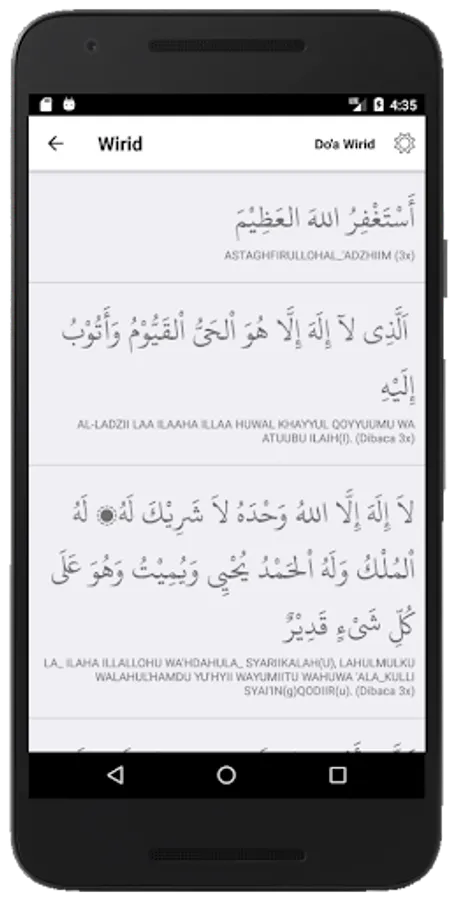 4:35
Wirid
Do'a Wirid
أَسْتَغْفِرُ اللهَ العَظِيْمَ
ASTAGHFIRULLOHAL_'ADZHIIM (3x)
اَلَّذِى لآ إِلَهَ إِلَّا هُوَ اْلحَيُّ اْلقَيُّوْمُ وَأَتُوْبُ
إِلَيْهِ
AL-LADZII LAA ILAAHA ILLAA HUWAL KHAYYUL QOYYUUMU WA
ATUUBU ILAIH(I). (Dibaca 3x)
لاَ إِلَهَ إِلَّا اللهُ وَحْدَهُ لاَ شَرِيْكَ لَهُ۝ لَهُ
اْلمُلْكُ وَلَهُ اْلحَمْدُ يُحْيِى وَيُمِيْتُ وَهُوَ عَلَى
كُلِّ شَىْءٍ قَدِيْرٌ
LA_ ILAHA ILLALLOHU WA'HDAHULA_ SYARIIKALAH(U), LAHULMULKU
WALAHUL'HAMDU YU'HYII WAYUMIITU WAHUWA 'ALA_KULLI
SYAI'IN(g)QODIIR(u). (Dibaca 3x)